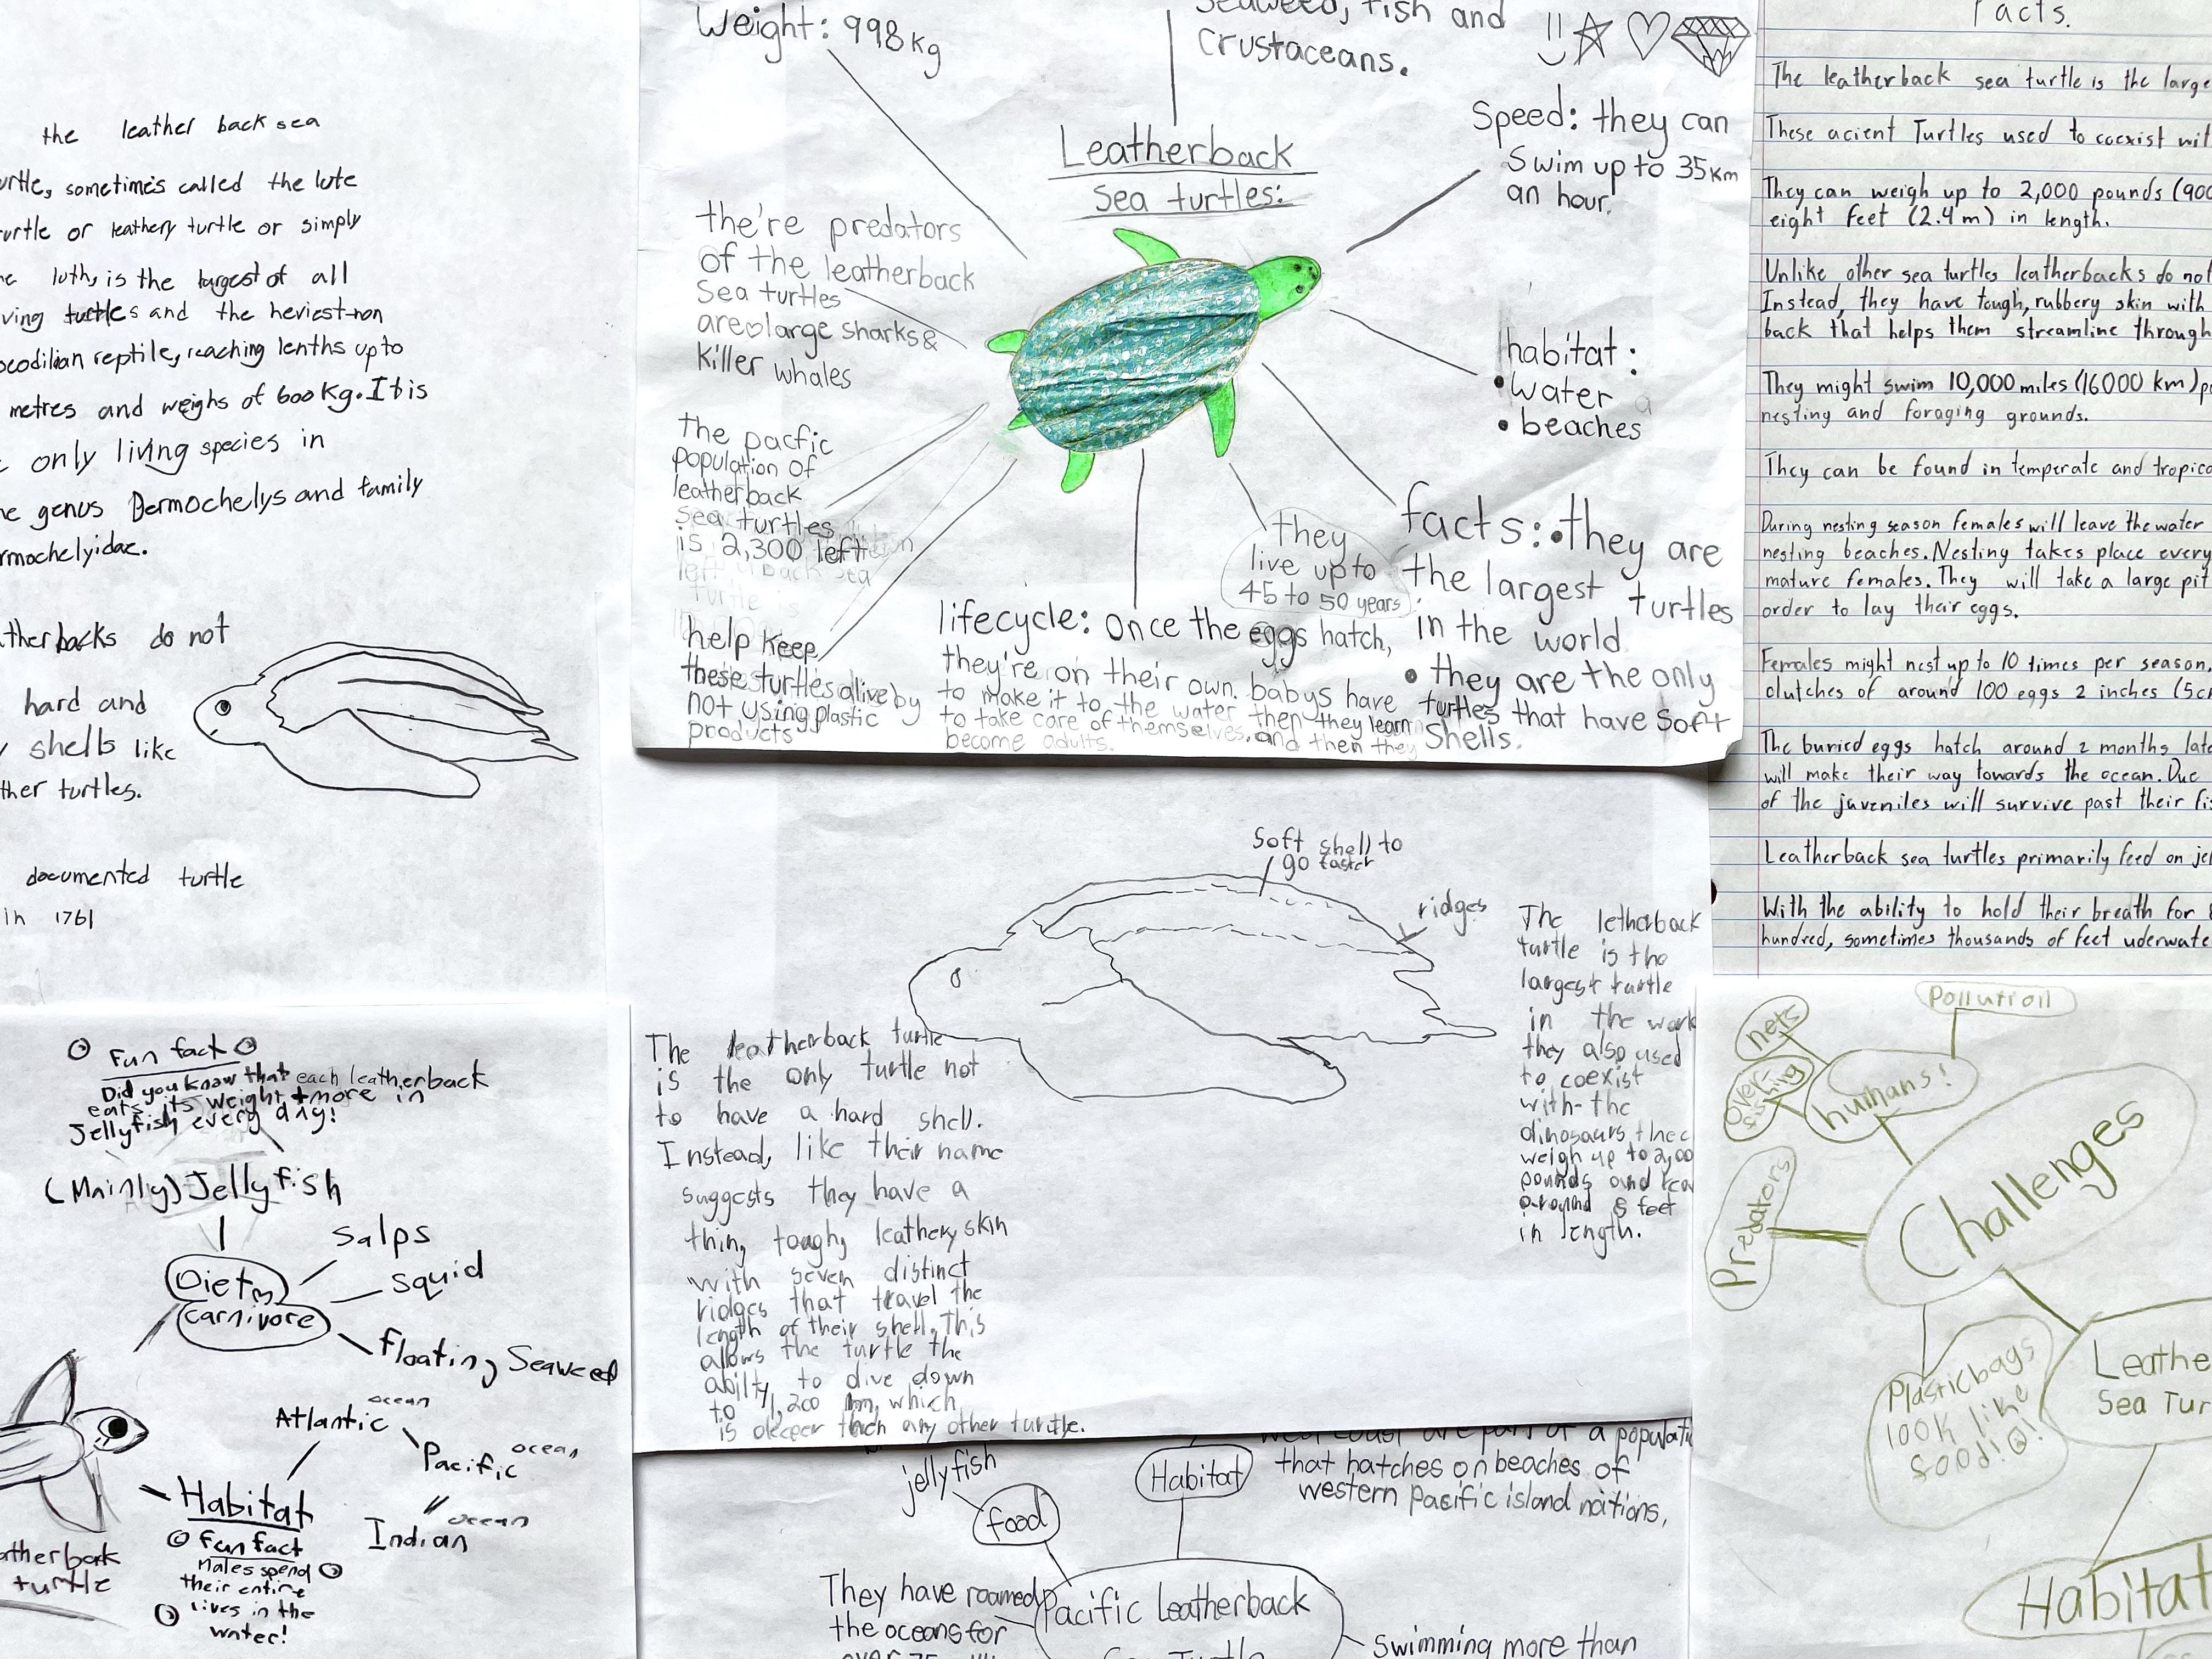 the leather back sea
urtle, sometimes called the lute
urtle or leathery turtle or simply
he luth, is the largest of all
ving turtles and the heriest-non
ocodilian reptile, reaching lenths up to
metres and weighs of 600 kg. It is
only living species in
he genus Dermochelys and family
rmochelyidae.
atherbacks do not
hard and
y shells like
ther turtles.
documented turtle
in 1761
Weight: 998 kg
Seaweed, fish and
crustaceans.
Leatherback
Sea turtles:
Speed: they can
Swim up to 35 km
an hour.
the're predators
of the leatherback
Sea turtles
are large sharks &
killer whales
habitat:
• water
• beaches
the pacfic
population of
leatherback
sea turtles
is 2,300 left
help keep
these turtles alive by
not using plastic
products
lifecycle: once the eggs hatch,
they're on their own. babys have
to make it to the water then they learn
to take care of themselves. and then they
become adults.
they
live up to
45 to 50 years
facts: • they are
the largest turtles
in the world
• they are the only
turtles that have soft
shells.
Facts.
The leatherback sea turtle is the large
These acient Turtles used to coexist wit
They can weigh up to 2,000 pounds (900
eight feet (2.4 m) in length.
Unlike other sea turtles leatherbacks do not
Instead, they have tough, rubbery skin with
back that helps them streamline through
They might swim 10,000 miles (16000 km) p
nesting and foraging grounds.
They can be found in temperate and tropica
During nesting season females will leave the water
nesting beaches. Nesting takes place every
mature females. They will take a large pit
order to lay their eggs.
Females might nest up to 10 times per season,
clutches of around 100 eggs 2 inches (5cm
The buried eggs hatch around 2 months late
will make their way towards the ocean. Due
of the juveniles will survive past their fi
Leatherback sea turtles primarily feed on je
With the ability to hold their breath for
hundred, sometimes thousands of feet uderwate
Soft shell to
go faster
ridges
The leatherback turtle
is the only turtle not
to have a hard shell.
Instead, like their name
suggests they have a
thing tough, leathery skin
with seven distinct
ridges that travel the
length of their shell. This
allows the turtle the
abilty to dive down
to 1,200 m, which
is deeper than any other turtle.
The letherback
turtle is the
largest turtle
in the world
they also used
to coexist
with the
dinosaurs
weigh up to 2,00
pounds and rea
around 8 feet
in length.
Fun fact
Did you know that each leatherback
eats its weight + more in
Jellyfish every day!
(Mainly) Jellyfish
Salps
squid
Diet
carnivore
Floating Seaweed
Atlantic ocean
Pacific ocean
Indian ocean
Habitat
Fun fact
Males spend
their entire
lives in the
water!
atherback
turtle
jellyfish
food
Habitat
west coast are part of a populati
that hatches on beaches of
western pacific island nations,
They have roamed
the oceans for
over 75
Pacific Leatherback
Sea Turtle
Swimming more than
pollution
nets
over-fishing
humans!
Predators
Challenges
Plastic bags
look like
food!
Leathe
Sea Tur
Habitat